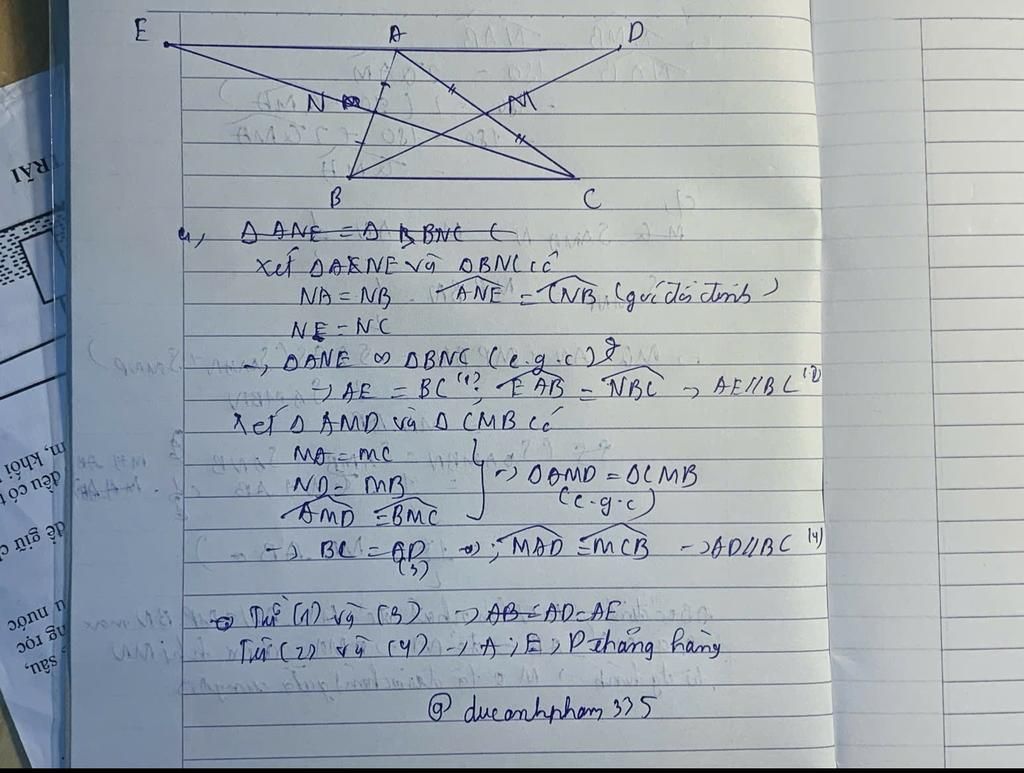 E A D
N M
B C
a, Δ ANE = Δ BNC
Xét ΔANE và ΔBNC có
NA = NB ANE = CNB (góc đối đỉnh)
NE = NC
→ ΔANE ∞ ΔBNC (c.g.c)
→ AE = BC (1); EAB = NBC → AE//BC (2)
Xét Δ AMD và Δ CMB có
MA = MC
MD = MB → ΔAMD = ΔCMB
AMD = BMC (c.g.c)
→ BC = AD (3) → ; MAD = MCB → AD//BC (4)
Từ (1) và (3) → AB = AD = AE
Từ (2) và (4) → A ; E ; D thẳng hàng
@ ducanhpham 335
TRÁI
m, khối
đều có t
dễ giữ c
u nước
ng rọc
sâu,